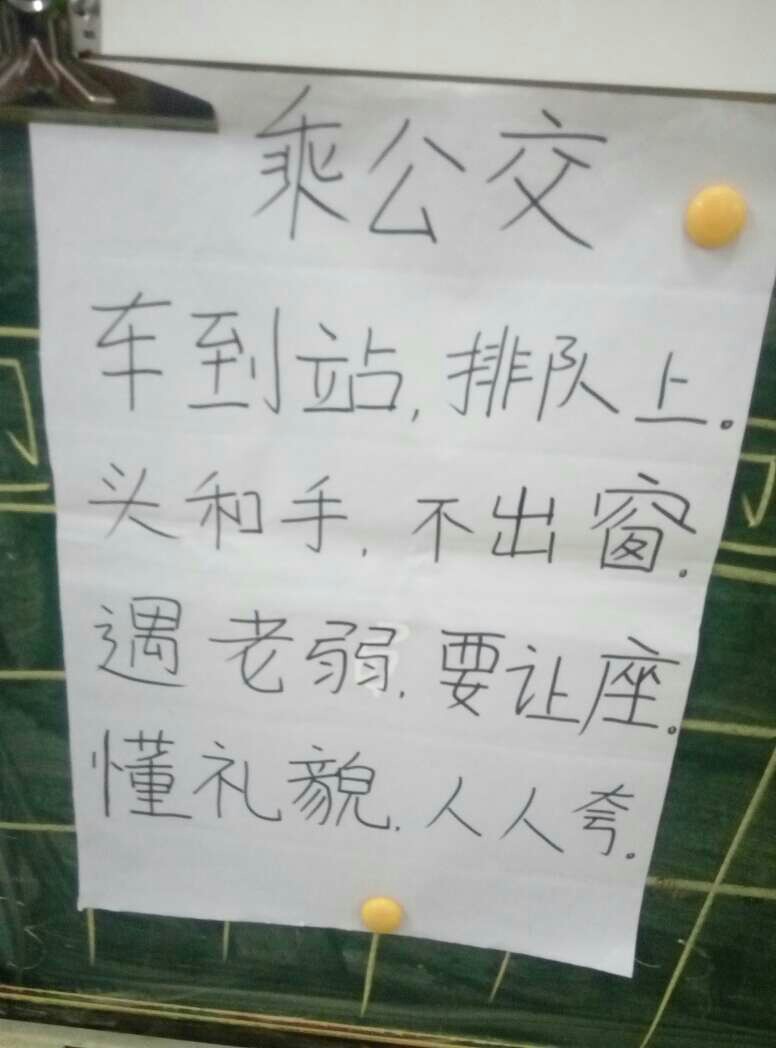 乘公交
车到站,排队上.
头和手,不出窗.
遇老弱,要让座.
懂礼貌,人人夸.